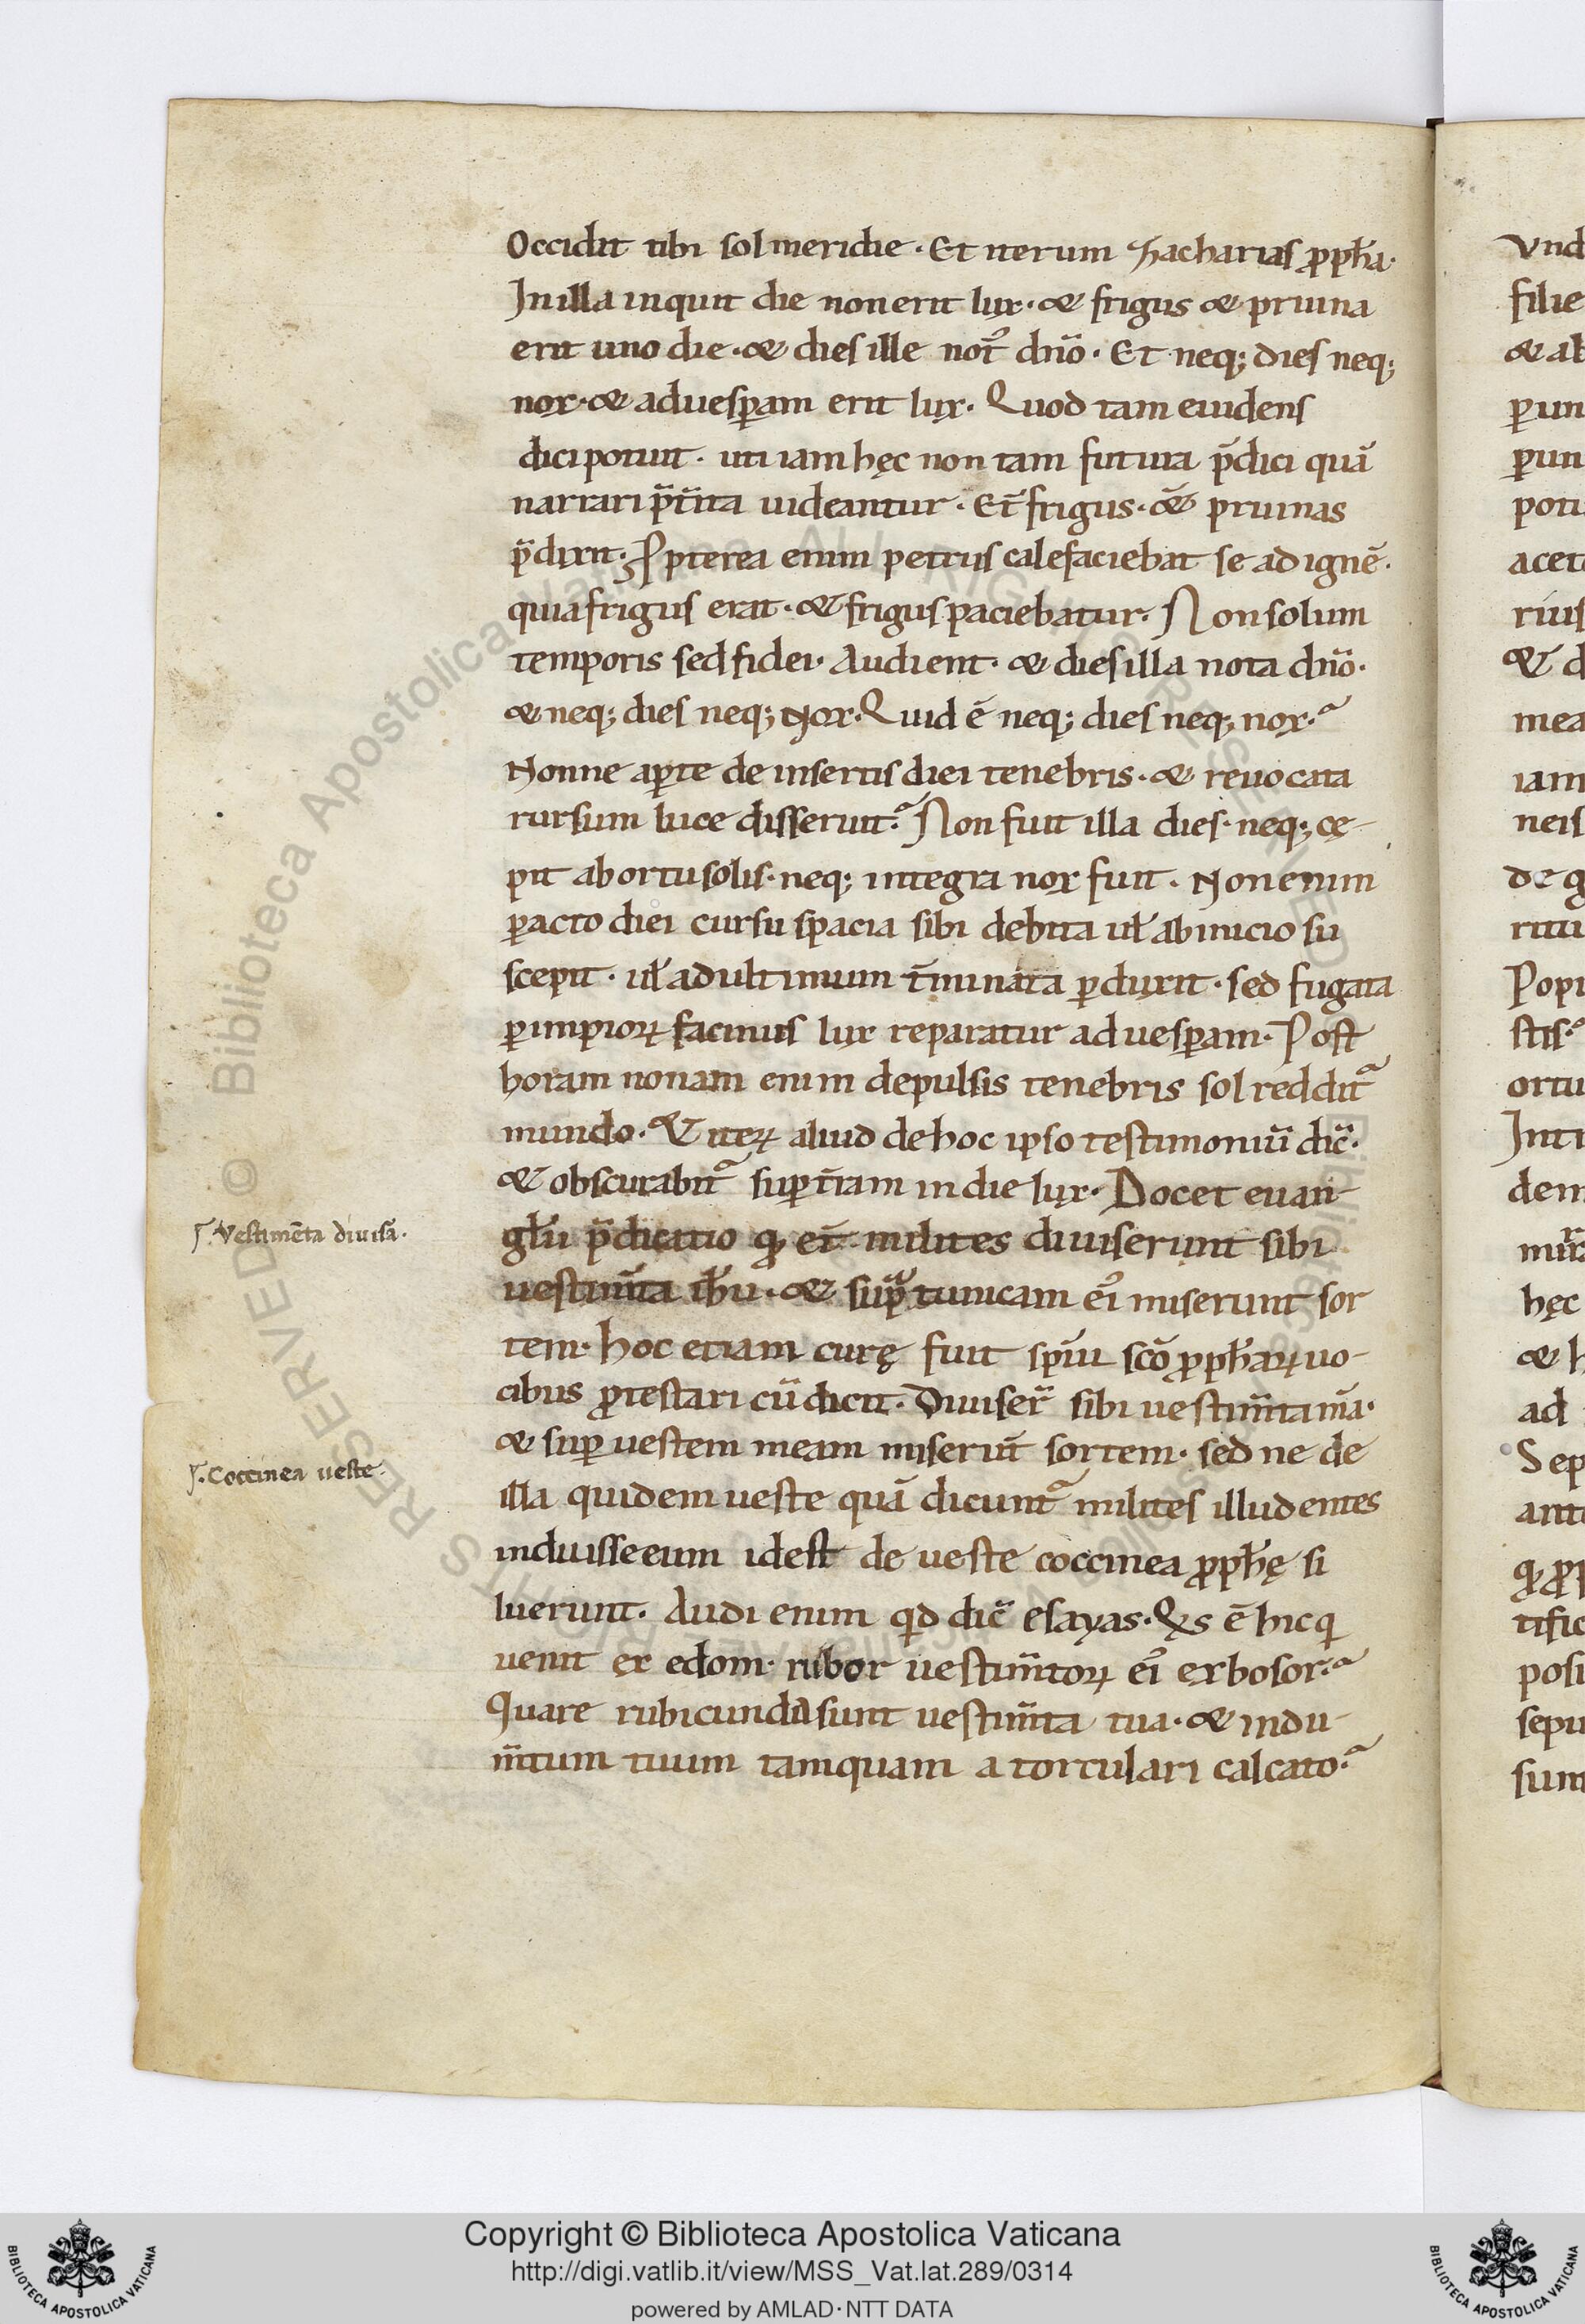 Occidit tibi sol meridie · Et iterum zacharias ꝓph̄a·
In illa inquit die non erit lux · & frigus & pruina
erit uno die · & dies ille not᷒ dn̄o · Et neq; dies neq;
nox · & ad uesꝑam erit lux · Quod tam euidens
dici potuit · uti iam hęc non tam futura p̄dici quā
narrari p̄t̄ita uideantur · Et̄ frigus · & pruinas
p̄dixit · Ꝓpterea enim petrus calefaciebat se ad ignē ·
quia frigus erat · & frigus paciebatur · Non solum
temporis sed fidei · Audient · & dies illa nota dn̄o ·
& neq; dies neq; Nox · Quid ē neq; dies neq; nox ·
Nonne aꝑte de insertis diei tenebris · & reuocata
rursum luce disserunt · Non fuit illa dies · neq; cę-
pit ab ortu solis · neq; integra nox fuit · Non enim
ꝑacto diei cursu spacia sibi debita ut̄ ab inicio su
scepit · ul̄ ad ultimum t̄minata ꝑduxit · sed fugata
ꝑ impioꝝ facinus lux reparatur ad uesꝑam · Post
horam nonam enim depulsis tenebris sol reddit᷑
mundo · & iteꝝ aliud de hoc ipso testimoniū dic̄ ·
& obscurabit᷑ suꝑ t̄ram in die lux · Docet euan-
gl̄ii p̄dicatio qꝫ et̄ milites diuiserunt sibi
uestim̄ta ih̄u · & supra tunicam ei᷒ miserunt sor
tem · hoc etiam curę fuit sp̄iu sc̄o ꝓph̄aꝝ uo-
cibus ꝓtestari cū dicit · Diuiser̄ sibi uestim̄ta m̄a ·
& suꝑ uestem meam miserūt sortem · sed ne de
illa quidem ueste quā dicunt᷑ milites illudentes
induisse eum id est de ueste coccinea ꝓph̄ę si
luerunt · Audi enim qd dic̄ esayas · Qis ē hic q
uenit ex edom · rubor uestim̄toꝝ ei᷒ ex bosor ·
Quare rubicunda sunt uestim̄ta tua · & indu-
m̄tum tuum tamquam a torculari calcato ·
Vestimēta diuisa ·
Coccinea ueste
Copyright © Biblioteca Apostolica Vaticana
http://digi.vatlib.it/view/MSS_Vat.lat.289/0314
powered by AMLAD·NTT DATA
BIBLIOTECA APOSTOLICA VATICANA
BIBLIOTECA APOSTOLICA VATICANA